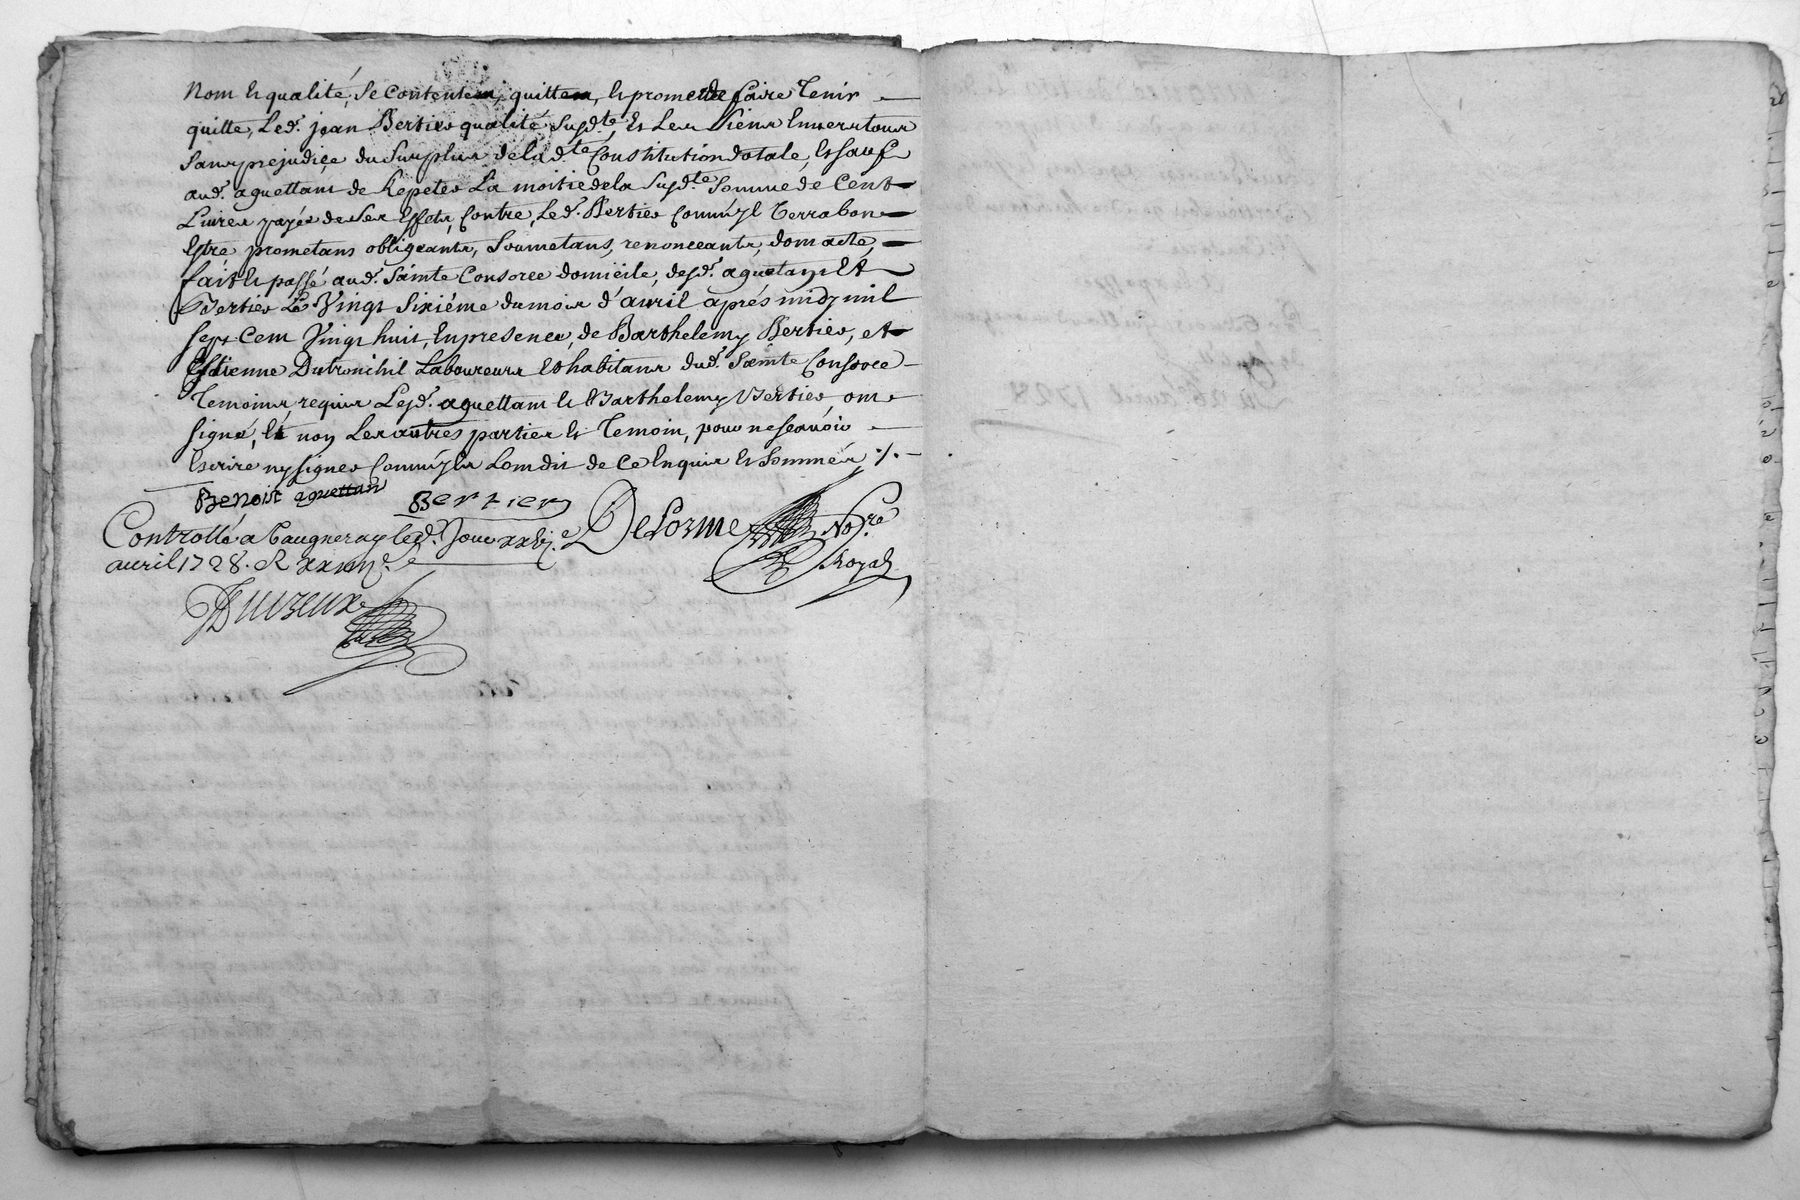 nom et qualité, se contentem, quittem, et promettet faire tenir
quitte, Led. jean Bertier qualité susd.te, et Les siens envers tous
sans prejudice du surplus de lad.te Constitution dotale, et sauf
aud. aguettant de Repeter La moitie de la susd.te somme de Cent
Livres payée de ses effets, Contre, Led. Bertier comm'yl verra bon
estre prometans obligeants, soumetans, renonceants, dom acte,
fait et passé aud. sainte Consorce domicile, desd. aguetans Et
Bertier Le Vingt sixiéme du mois d'avril aprés midy mil
sept Cem Vingt huit, en presence, de Barthelemy Bertier, et
Estienne Dutronchil Laboureurs et habitans dud. Sainte Consorce
Temoins requis Lesd. aguettant et Barthelemy Bertier, ont
signé, et non Les autres parties et Temoin, pour ne scavoir
escrire ny signer comm'yls L'ont dit de ce Enquis et sommés ./.
Benoist aguettan Bertier
DeLorme No.re Royal
Controllé a Vaugneray led. Jour xxvj.e
avril 1728. R